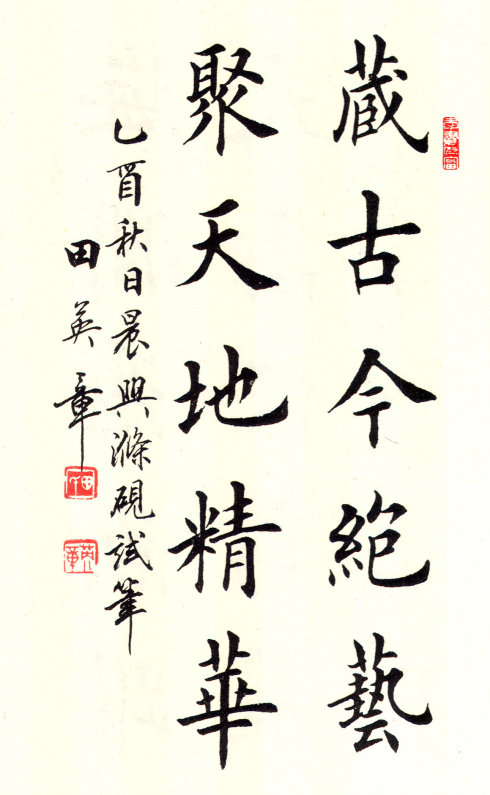 藏古今絶藝
聚天地精華
乙酉秋日晨興滌硯試筆
田英章
田
英章